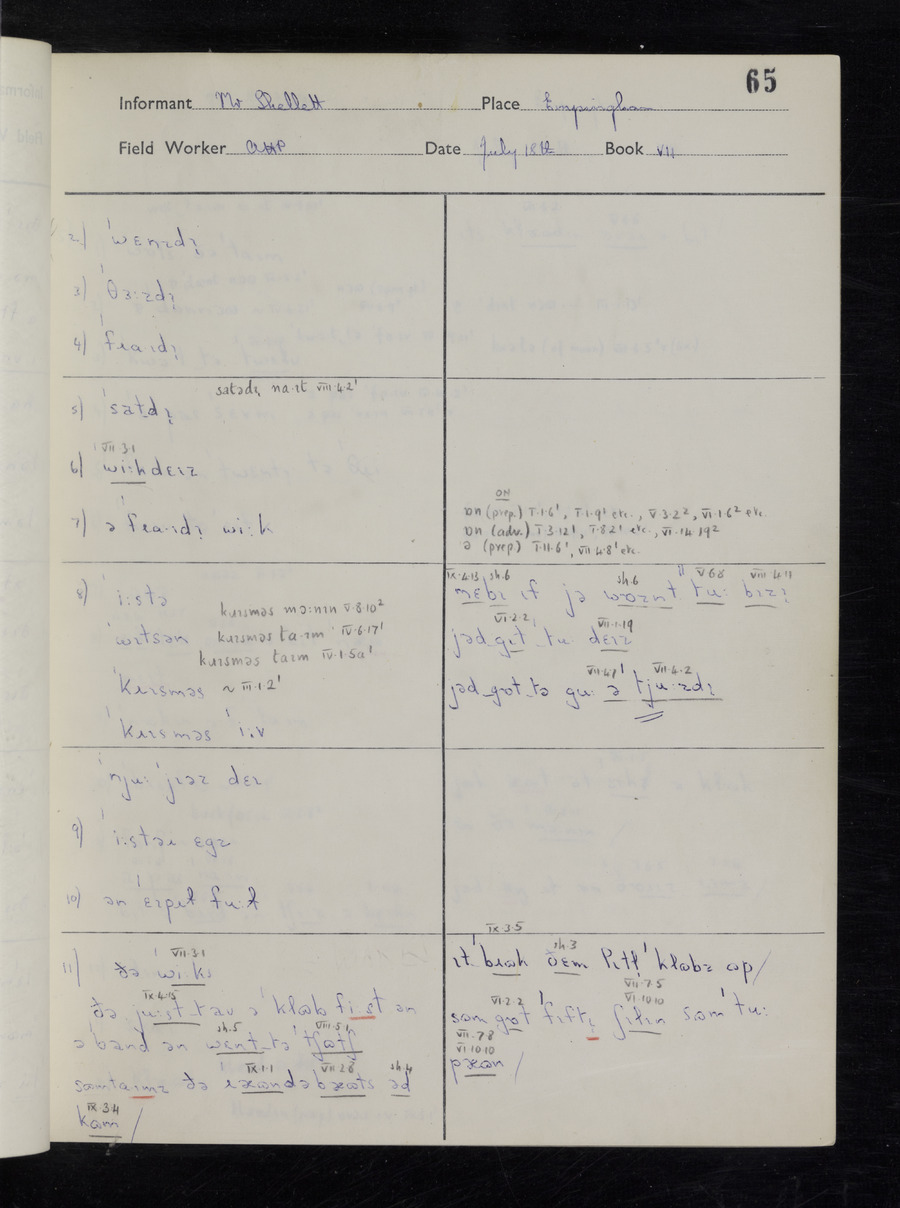 65
Informant Mr Shellett Place Empingham
Field Worker Date July 18th Book VII
2) ˈwɛnzdɪ
3) ˈθɜːzdɪ
4) ˈfɹaˑɪdɪ
satədɪ naˑɪt VIII·4·2¹
5) ˈsatdɪ
VII·3·1
6) ˈwiːkdɛɪz
7) ə ˈfɹaˑɪdɪ wiˑk
ON
ɒn (prep.) I·1·6¹, I·1·9¹ etc., V·3·2², VI·1·6² etc.
ɒn (adv.) I·3·12¹, I·8·2¹ etc., VI·14·19²
ə (prep.) I·11·6¹, VII·4·8¹ etc.
8) ˈiːstə
kɹɪsməs mɔːnɪn V·8·10²
ˈwɪtsən kɹɪsməs taˑɪm IV·6·17¹
kɹɪsməs taɪm IV·1·5a¹
ˈkɹɪsməs ~ III·1·2¹
ˈkɹɪsməs ˈiːv
IX·4·13 sh.6 sh.6 V·6·8 VIII·4·11
mɛbɪ ɪf jə wɒznt tuː bɪzɪ
VI·2·2 VII·1·19
jəd gɪt tuː dɛɪz
VII·4·7 VII·4·2
jəd gɒt tə guː ə ˈtjuːzdɪ
ˈnjuː ˈjɪəz dɛɪ
9) ˈiːstəɹ ɛgz
10) ən ˈɛɪpɹɪt fuːt
VII·3·1
11) ðə wiːks
IX·4·15
ðə juːst tav ə ˈklʊb fiːst ən
sh.5 VIII·5·1
ə band ən wɛnt tə ˈtʃətʃ
IX·1·1 VII·2·8 sh.4
sʊmtaɪmz ðə ɹæʊndəbæʊts əd
IX·3·4
kʊm /
IX·3·5
sh.3
ɪt ˈbɹɒk ðɛm lɪtl ˈklʊbz ʊp /
VII·7·5
VI·2·2 VI·10·10
sʊm gɒt ˈfɪftɪ ʃɪlɪn sʊm ˈtuː
VII·7·8
VI·10·10
pæʊn /